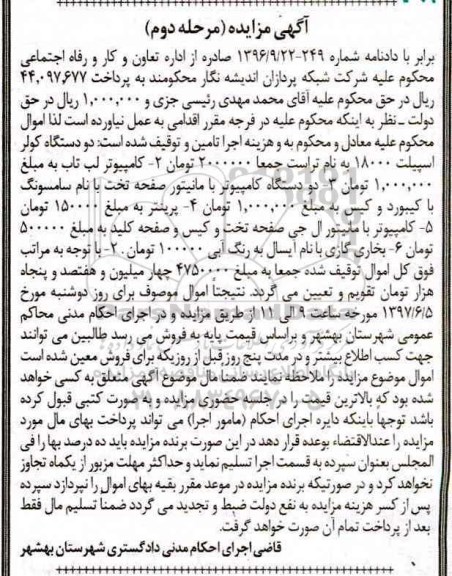 آگهی مزایده (مرحله دوم)
برابر با دادنامه شماره ۲۴۹-۱۳۹۶/۹/۲۲ صادره از اداره تعاون و کار و رفاه اجتماعی
محکوم علیه شرکت شبکه پردازان اندیشه نگار محکومند به پرداخت ۴۴,۰۹۷,۶۷۷
ریال در حق محکوم علیه آقای محمد مهدی رئیسی جزی و ۱,۰۰۰,۰۰۰ ریال در حق
دولت ـ نظر به اینکه محکوم علیه در فرجه مقرر اقدامی به عمل نیاورده است لذا اموال
محکوم علیه معادل و محکوم به و هزینه اجرا تامین و توقیف شده است: دو دستگاه کولر
اسپیلت ۱۸۰۰۰ به نام تراست جمعا ۲۰۰۰۰۰۰ تومان ۲- کامپیوتر لب تاب به مبلغ
۱,۰۰۰,۰۰۰ تومان ۳- دو دستگاه کامپیوتر با مانیتور صفحه تخت با نام سامسونگ
با کیبورد و کیس به مبلغ ۱,۰۰۰,۰۰۰ تومان ۴- پرینتر به مبلغ ۱۵۰۰۰۰ تومان
۵- کامپیوتر با مانیتور ال جی صفحه تخت و کیس و صفحه کلید به مبلغ ۵۰۰۰۰۰
تومان ۶- بخاری گازی با نام آبسال به رنگ آبی ۱۰۰۰۰۰ تومان . ۲- با توجه به مراتب
فوق کل اموال توقیف شده جمعا به مبلغ ۴۷۵۰۰۰۰ چهار میلیون و هفتصد و پنجاه
هزار تومان تقویم و تعیین می گردد. نتیجتا اموال موصوف برای روز دوشنبه مورخ
۱۳۹۷/۶/۵ مورخه ساعت ۹ الی ۱۱ از طریق مزایده و در اجرای احکام مدنی محاکم
عمومی شهرستان بهشهر و براساس قیمت پایه به فروش می رسد طالبین می توانند
جهت کسب اطلاع بیشتر و در مدت پنج روز قبل از روزیکه برای فروش معین شده است
اموال موضوع مزایده را ملاحظه نمایند ضمنا مال موضوع آگهی متعلق به کسی خواهد
شده بود که بالاترین قیمت را در جلسه حضوری مزایده و به صورت کتبی قبول کرده
باشد توجها باینکه دایره اجرای احکام (مامور اجرا) می تواند پرداخت بهای مال مورد
مزایده را عندالاقتضاء بوعده قرار دهد در این صورت برنده مزایده باید ده درصد بها را فی
المجلس بعنوان سپرده به قسمت اجرا تسلیم نماید و حداکثر مهلت مزبور از یکماه تجاوز
نخواهد کرد و در صورتیکه برنده مزایده در موعد مقرر بقیه بهای اموال را نپردازد سپرده
پس از کسر هزینه مزایده به نفع دولت ضبط و تجدید می گردد ضمناً تسلیم مال فقط
بعد از پرداخت تمام آن صورت خواهد گرفت.
قاضی اجرای احکام مدنی دادگستری شهرستان بهشهر